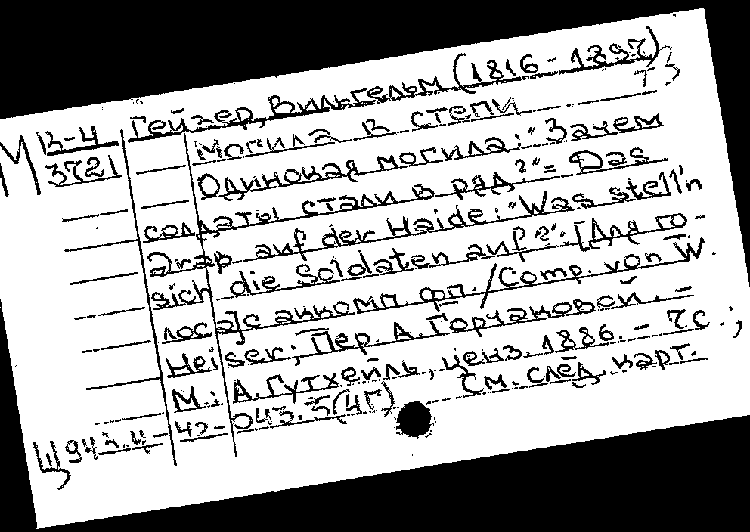 Гейзер, Вильгельм (1816-1897)
М В-4
3721
Могила в степи
Одинокая могила: "Зачем
солдаты стали в ряд?" = Das
Grap auf der Haide: "Was stell'n
sich die Soldaten auf?": [Для го-
лоса]с аккомп. фп. / Comp. von W.
Heiser; Пер. А. Горчаковой. -
М.: А. Гутхейль, ценз. 1886. - 7с.;
См. след. карт.
Щ943.4-42-043.5(4Г)